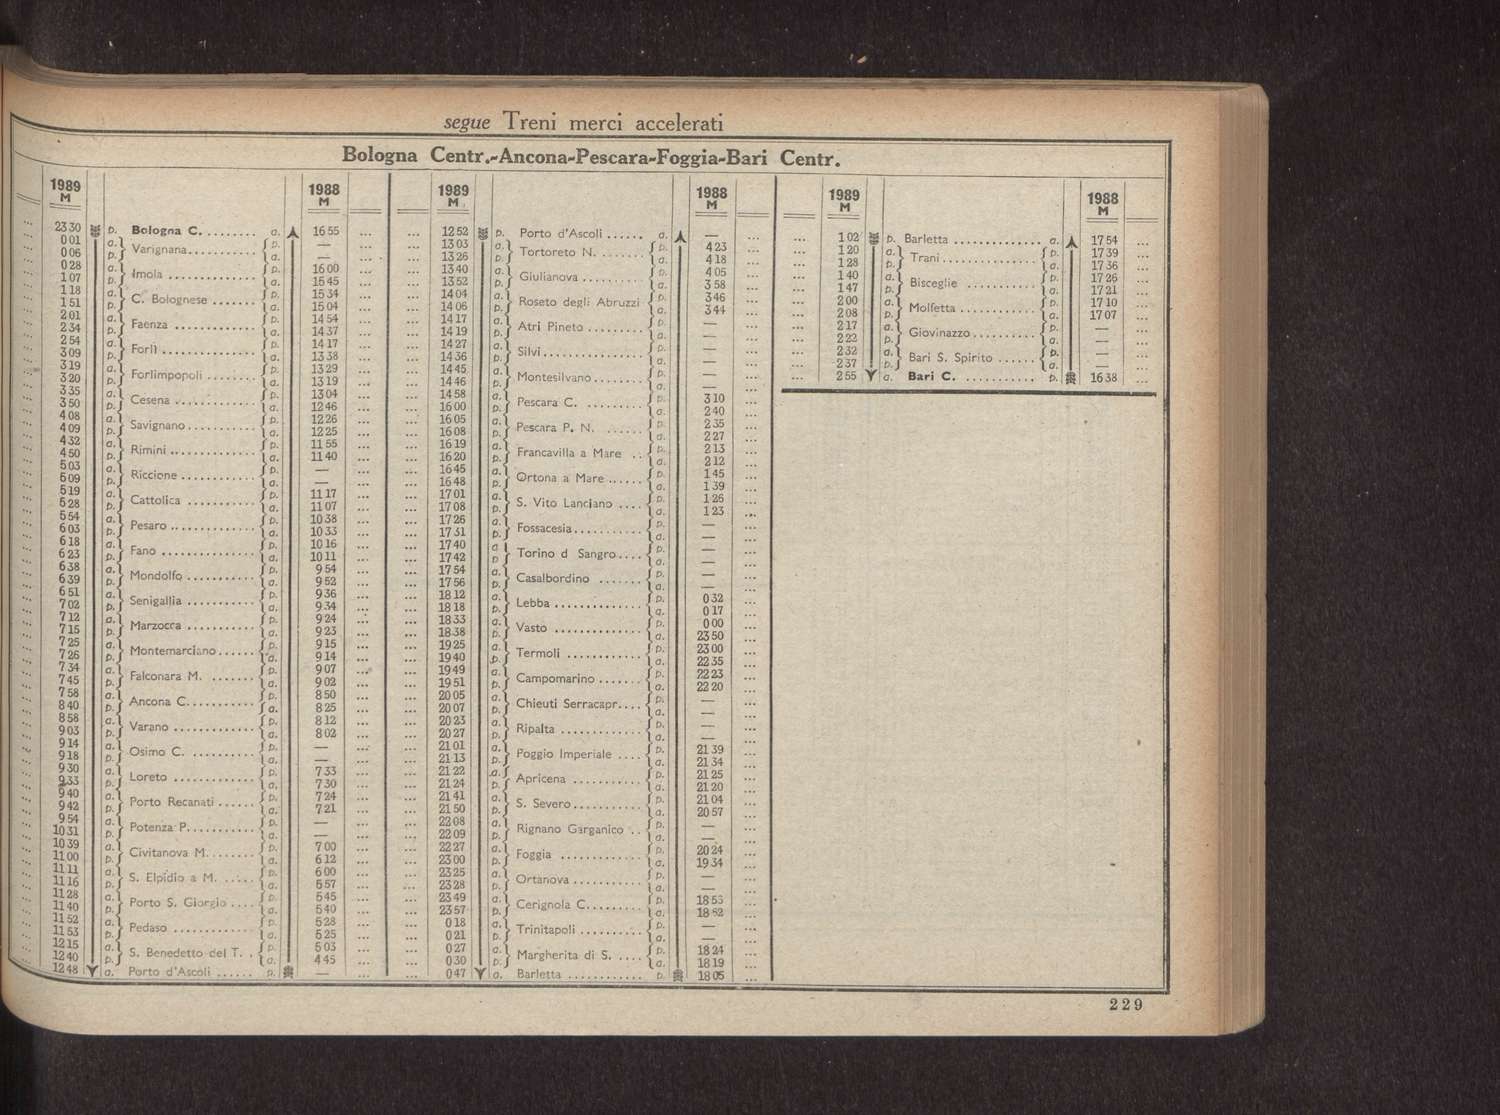 segue Treni merci accelerati
Bologna Centr.-Ancona-Pescara-Foggia-Bari Centr.
1989 M 1988 M
... 23 30 p. Bologna C. ........ a. 16 55 ...
... 0 01 a. Varignana ........... p. — ...
... 0 06 p. a. — ...
... 0 28 a. Imola .............. p. 16 00 ...
... 1 07 p. a. 15 45 ...
... 1 18 a. C. Bolognese ....... p. 15 34 ...
... 1 51 p. a. 15 04 ...
... 2 01 a. Faenza ............. p. 14 54 ...
... 2 34 p. a. 14 37 ...
... 2 54 a. Forlì ............... p. 14 17 ...
... 3 09 p. a. 13 38 ...
... 3 19 a. Forlimpopoli ........ p. 13 29 ...
... 3 20 p. a. 13 19 ...
... 3 35 a. Cesena ............. p. 13 04 ...
... 3 50 p. a. 12 46 ...
... 4 08 a. Savignano ........... p. 12 26 ...
... 4 09 p. a. 12 25 ...
... 4 32 a. Rimini .............. p. 11 55 ...
... 4 50 p. a. 11 40 ...
... 5 03 a. Riccione ............ p. — ...
... 5 09 p. a. — ...
... 5 19 a. Cattolica ........... p. 11 17 ...
... 5 28 p. a. 11 07 ...
... 5 54 a. Pesaro .............. p. 10 38 ...
... 6 03 p. a. 10 33 ...
... 6 18 a. Fano ............... p. 10 16 ...
... 6 23 p. a. 10 11 ...
... 6 38 a. Mondolfo ........... p. 9 54 ...
... 6 39 p. a. 9 52 ...
... 6 51 a. Senigallia ........... p. 9 36 ...
... 7 02 p. a. 9 34 ...
... 7 12 a. Marzocca ........... p. 9 24 ...
... 7 15 p. a. 9 23 ...
... 7 25 a. Montemarciano ...... p. 9 15 ...
... 7 26 p. a. 9 14 ...
... 7 34 a. Falconara M. ....... p. 9 07 ...
... 7 45 p. a. 9 02 ...
... 7 58 a. Ancona C. .......... p. 8 50 ...
... 8 40 p. a. 8 25 ...
... 8 58 a. Varano ............. p. 8 12 ...
... 9 03 p. a. 8 02 ...
... 9 14 a. Osimo C. .......... p. — ...
... 9 18 p. a. — ...
... 9 30 a. Loreto ............. p. 7 33 ...
... 9 33 p. a. 7 30 ...
... 9 40 a. Porto Recanati ...... p. 7 24 ...
... 9 42 p. a. 7 21 ...
... 9 54 a. Potenza P. .......... p. — ...
... 10 31 p. a. — ...
... 10 39 a. Civitanova M. ....... p. 7 00 ...
... 11 00 p. a. 6 12 ...
... 11 11 a. S. Elpidio a M. ..... p. 6 00 ...
... 11 16 p. a. 5 57 ...
... 11 28 a. Porto S. Giorgio .... p. 5 45 ...
... 11 40 p. a. 5 40 ...
... 11 52 a. Pedaso ............. p. 5 28 ...
... 11 53 p. a. 5 25 ...
... 12 15 a. S. Benedetto del T. . p. 5 03 ...
... 12 40 p. a. 4 45 ...
... 12 48 a. Porto d'Ascoli ...... p. — ...
1989 M 1988 M
... 12 52 p. Porto d'Ascoli ...... a. — ...
... 13 03 a. Tortoreto N. ........ p. 4 23 ...
... 13 26 p. a. 4 18 ...
... 13 40 a. Giulianova .......... p. 4 05 ...
... 13 52 p. a. 3 58 ...
... 14 04 a. Roseto degli Abruzzi p. 3 46 ...
... 14 06 p. a. 3 44 ...
... 14 17 a. Atri Pineto ......... p. — ...
... 14 19 p. a. — ...
... 14 27 a. Silvi ................ p. — ...
... 14 36 p. a. — ...
... 14 45 a. Montesilvano ........ p. — ...
... 14 46 p. a. — ...
... 14 58 a. Pescara C. ......... p. 3 10 ...
... 16 00 p. a. 2 40 ...
... 16 05 a. Pescara P. N. ...... p. 2 35 ...
... 16 08 p. a. 2 27 ...
... 16 19 a. Francavilla a Mare .. p. 2 13 ...
... 16 20 p. a. 2 12 ...
... 16 45 a. Ortona a Mare ...... p. 1 45 ...
... 16 48 p. a. 1 39 ...
... 17 01 a. S. Vito Lanciano .... p. 1 26 ...
... 17 08 p. a. 1 23 ...
... 17 26 a. Fossacesia ........... p. — ...
... 17 31 p. a. — ...
... 17 40 a Torino d Sangro .... p. — ...
... 17 42 p a. — ...
... 17 54 a. Casalbordino ....... p. — ...
... 17 56 p. a. — ...
... 18 12 a. Lebba .............. p. 0 32 ...
... 18 18 p. a. 0 17 ...
... 18 33 a. Vasto .............. p. 0 00 ...
... 18 38 p. a. 23 50 ...
... 19 25 a. Termoli ............ p. 23 00 ...
... 19 40 p. a. 22 35 ...
... 19 49 a. Campomarino ....... p. 22 23 ...
... 19 51 p. a. 22 20 ...
... 20 05 a. Chieuti Serracapr.... p. — ...
... 20 07 p. a. — ...
... 20 23 a. Ripalta ............. p. — ...
... 20 27 p. a. — ...
... 21 01 a. Poggio Imperiale .... p. 21 39 ...
... 21 13 p. a. 21 34 ...
... 21 22 a. Apricena ........... p. 21 25 ...
... 21 24 p. a. 21 20 ...
... 21 41 a. S. Severo ........... p. 21 04 ...
... 21 50 p. a. 20 57 ...
... 22 08 a. Rignano Garganico .. p. — ...
... 22 09 p. a. — ...
... 22 27 a. Foggia ............. p. 20 24 ...
... 23 00 p. a. 19 34 ...
... 23 25 a. Ortanova ........... p. — ...
... 23 28 p. a. — ...
... 23 49 a. Cerignola C. ........ p. 18 53 ...
... 23 57 p. a. 18 52 ...
... 0 18 a. Trinitapoli .......... p. — ...
... 0 21 p. a. — ...
... 0 27 a. Margherita di S. .... p. 18 24 ...
... 0 30 p. a. 18 19 ...
... 0 47 a. Barletta ............ p. 18 05 ...
1989 M 1988 M
... 1 02 p. Barletta .............. a. 17 54 ...
... 1 20 a. Trani ............... p. 17 39 ...
... 1 28 p. a. 17 36 ...
... 1 40 a. Bisceglie ........... p. 17 26 ...
... 1 47 p. a. 17 21 ...
... 2 00 a. Molfetta ............ p. 17 10 ...
... 2 08 p. a. 17 07 ...
... 2 17 a. Giovinazzo .......... p. — ...
... 2 22 p. a. — ...
... 2 32 a. Bari S. Spirito ...... p. — ...
... 2 37 p. a. — ...
... 2 55 a. Bari C. ........... p. 16 38 ...
229